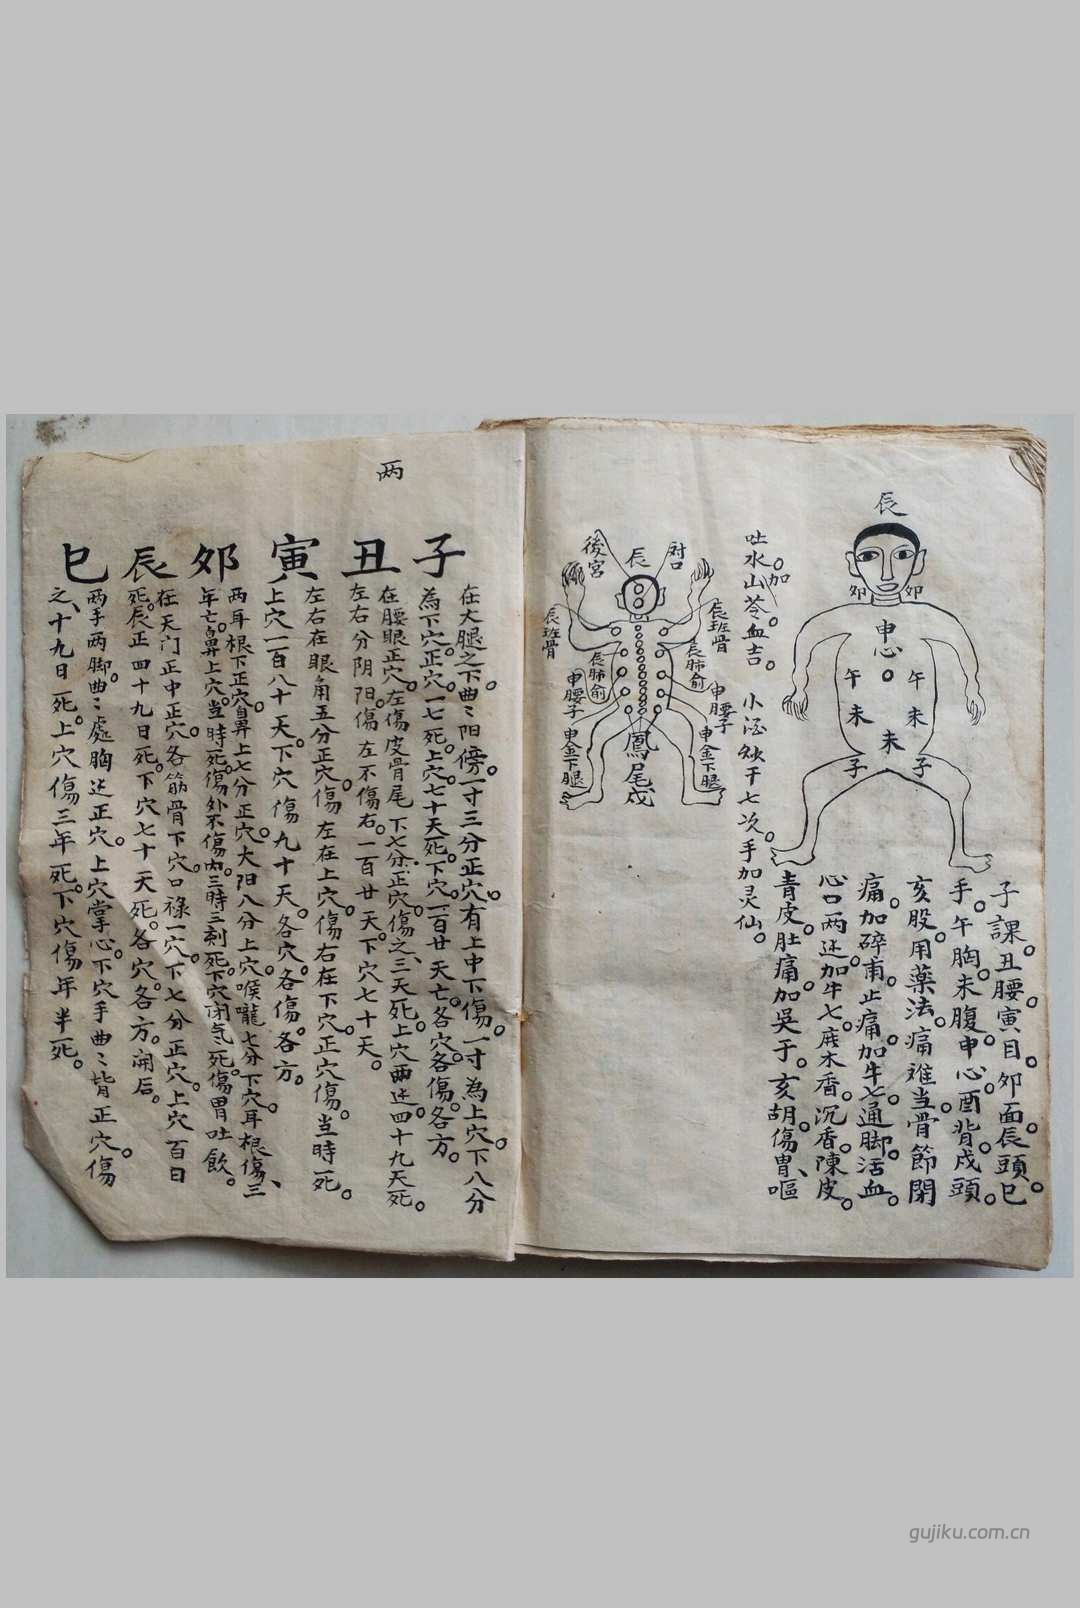 辰
卯
卯
申
心
午
午
未
未
未
子
子
子課。丑腰。寅目。卯面。辰頭。巳
手。午胸。未腹。申心。酉背。戍頭。
亥股。用藥法。痛难当。骨節閉
痛。加碎甫。止痛。加牛七。通脚。活血。
心口两边。加牛七。広木香。沉香。陳皮。
青皮。肚痛。加吳于。亥胡。傷胃、嘔
吐水。加山苓。血吉。小洒
于七次。手加灵仙。
後宮
辰
对口
辰班骨
辰班骨
辰肺俞
辰肺俞
申腰子
申腰子
申金下腿
申金下腿
鳳尾戍
两
子
在大腿之下曲〻阳傍。一寸三分正穴。有上中下傷。一寸為上穴。下八分
為下穴。正穴。一七死。上穴。七十天死。下穴。一百廿天亡。各穴各傷。各方。
丑
在腰眼正穴。左傷皮骨尾下七分。正穴傷之、三天死。上穴两边。四十九天死。
左右分阴阳。傷左不傷右。一百廿天。下穴七十天。
寅
左右在眼角五分正穴。傷左在上穴。傷右在下穴。正穴傷。当時死。
上穴一百八十天。下穴傷九十天。各穴。各傷。各方。
卯
两耳根下正穴。鼻上七分正穴。大阳八分上穴。喉嚨七分下穴。耳根傷、三
年亡。鼻上穴。当時死。傷外不傷内。三時三刻死。下穴闭气死。傷胃吐飲。
辰
在天门正中正穴。各筋骨下穴。口禄一穴。下七分正穴。上穴百日
死。辰正四十九日死。下穴七十天死。各穴。各方。開后。
巳
两手两脚。曲〻處胸边正穴。上穴掌心。下穴手曲〻皆正穴。傷
之、十九日死。上穴傷三年死。下穴傷年半死。
gujiku.com.cn